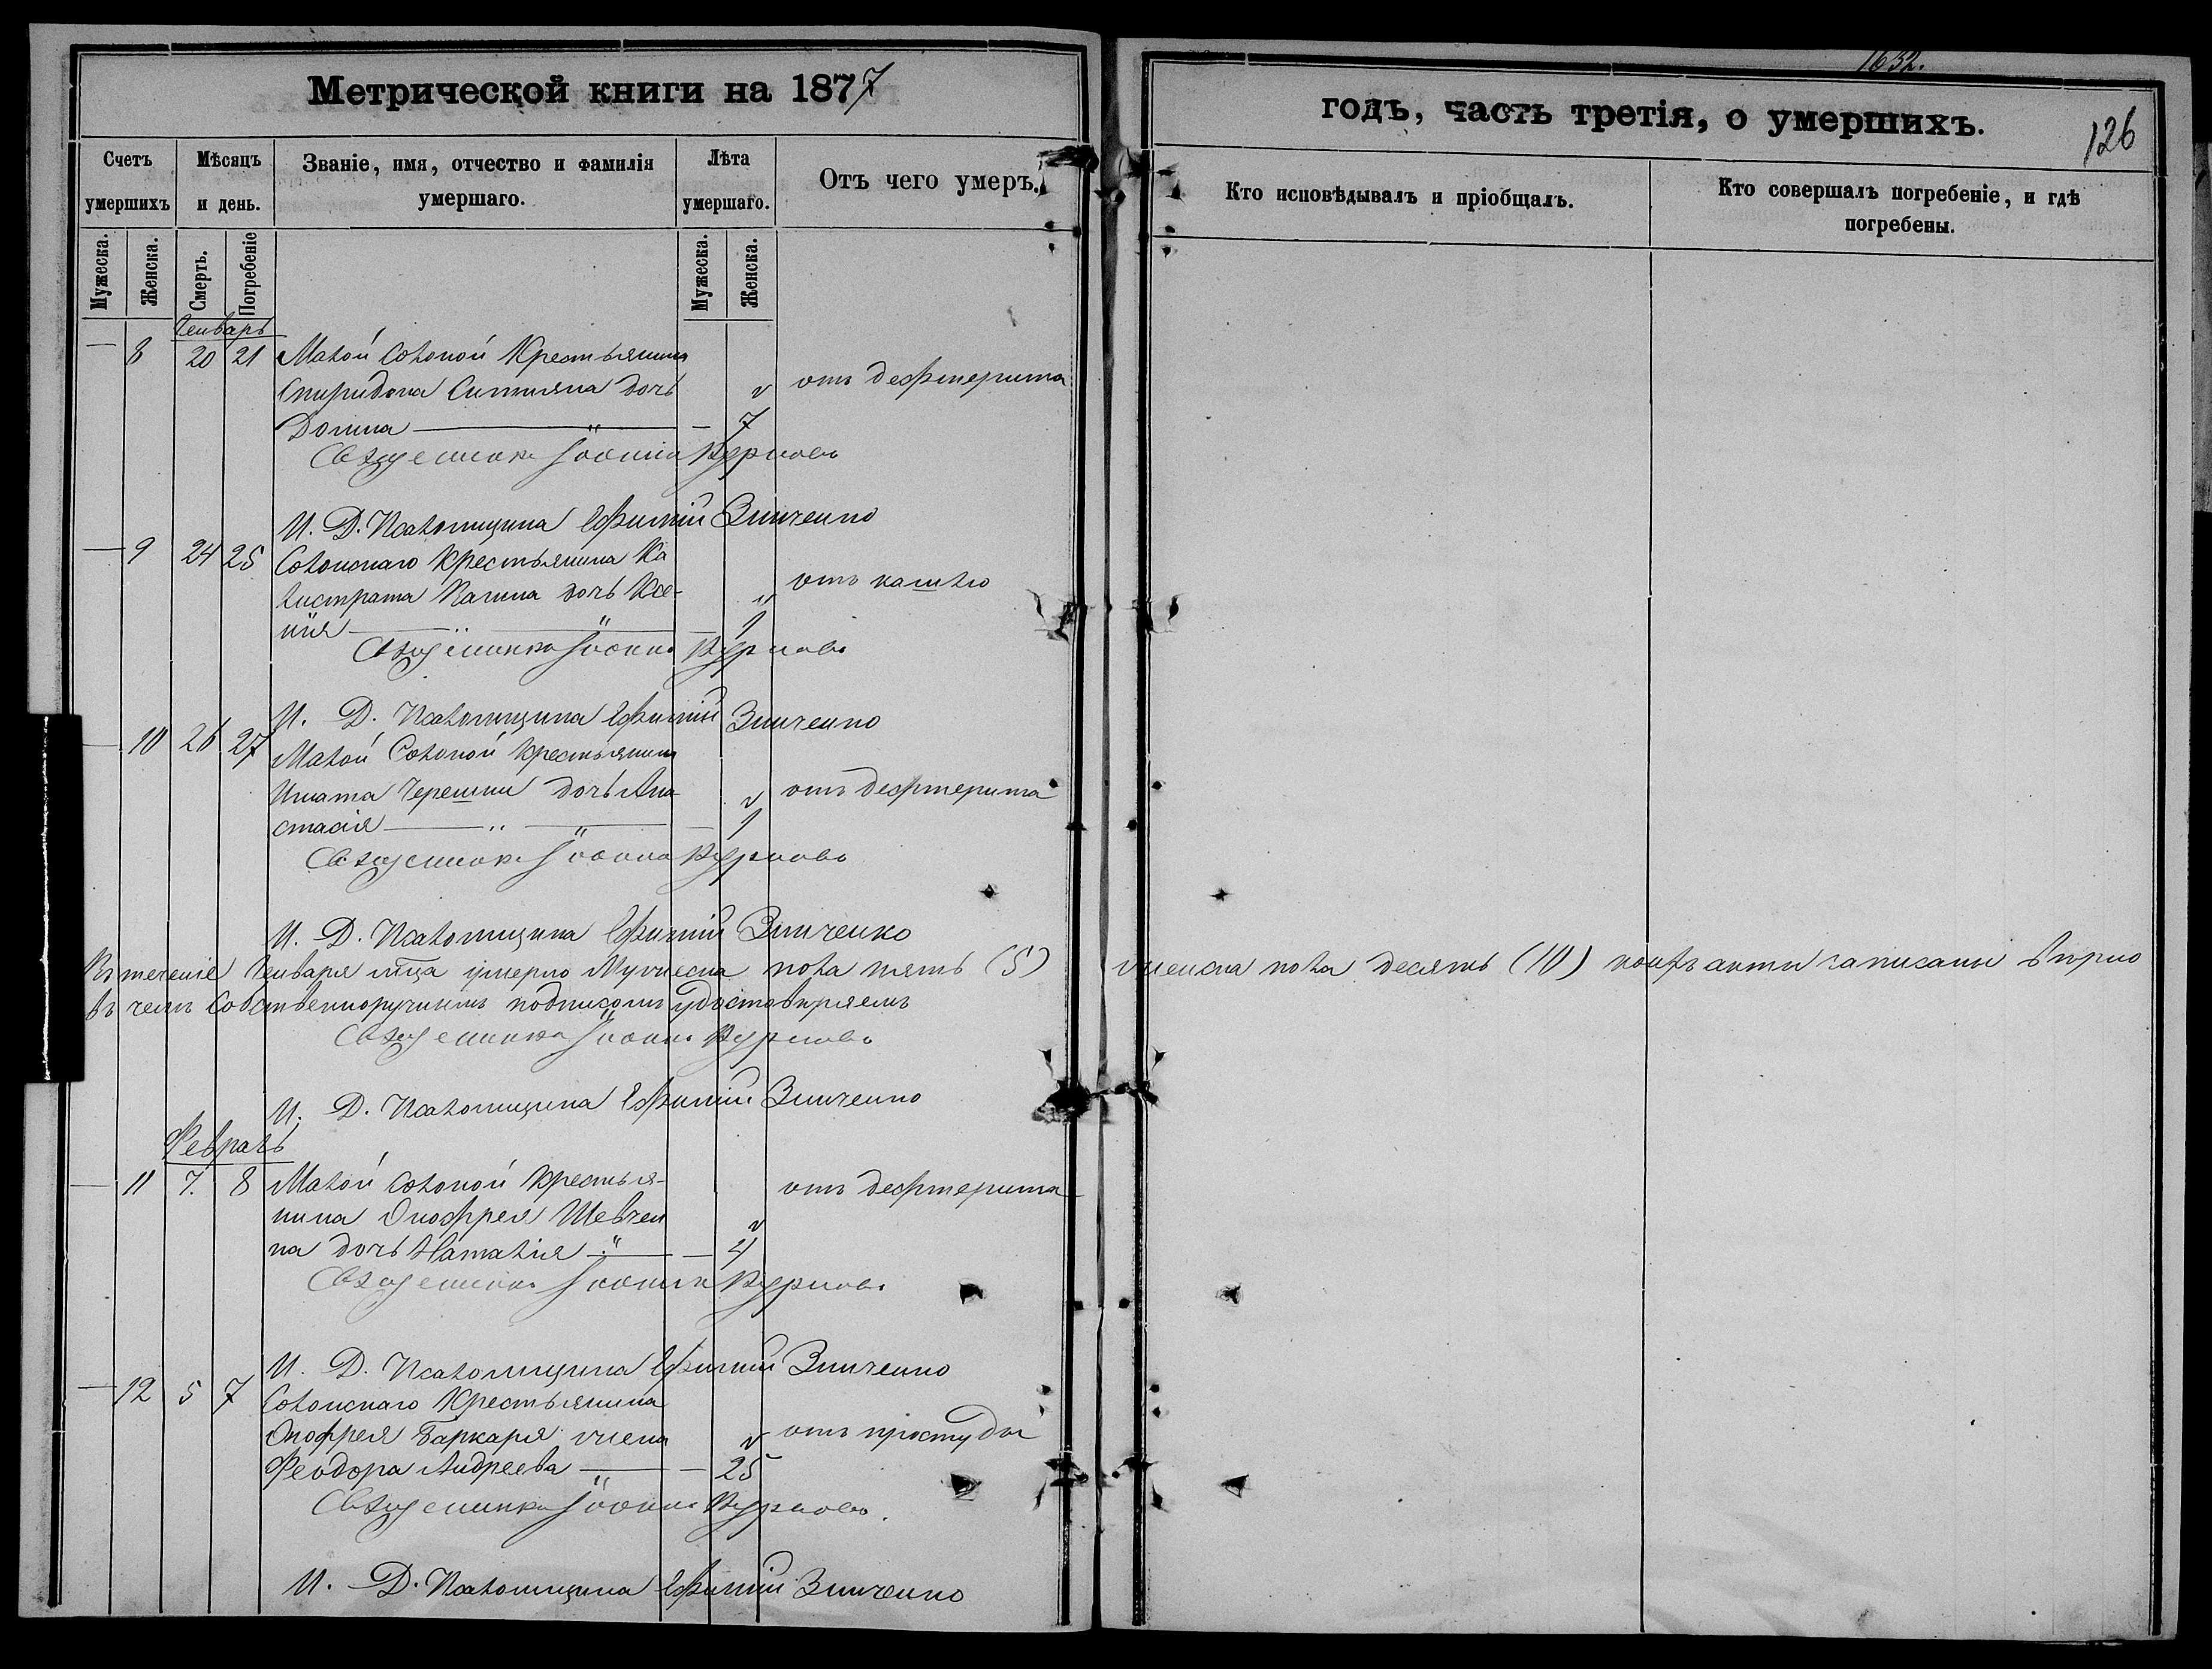 Метрической книги на 1877
Счетъ умершихъ
Мѣсяцъ и день.
Званіе, имя, отчество и фамилія умершаго.
Лѣта умершаго.
Отъ чего умеръ.
Мужеска.
Женска.
Смерть.
Погребеніе
Мужеска.
Женска.
Генварь
— 8 20 21 Малой Солоной Крестьянина
Спиридона дочь отъ дефтерита
Домна — 7
Священникъ Іоаннъ Курловъ
И. Д. Псаломщика Ефимій Зинченко
— 9 24 25 Солонскаго Крестьянина Ка
листрата дочь Ксе- отъ кашлю
нія — 1
Священникъ Іоаннъ Курловъ
И. Д. Псаломщика Ефимій Зинченко
— 10 26 27 Малой Солоной Крестьянина
Игната Черешни дочь Ана отъ дефтерита
стасія — 1
Священникъ Іоаннъ Курловъ
И. Д. Псаломщика Ефимій Зинченко
Въ теченіе Генваря мца умерло Мужеска пола пять (5) женска пола десять (10) акты записаны вѣрно
въ чемъ собственноручнымъ подписомъ удостовѣряемъ
Священникъ Іоаннъ Курловъ
И. Д. Псаломщика Ефимій Зинченко
Февраль
— 11 7. 8 Малой Солоной Крестья- отъ дефтерита
нина Онофрея Шевчен
ка дочь Наталія — 4
Священникъ Іоаннъ Курловъ
И. Д. Псаломщика Ефимій Зинченко
— 12 5 7 Солонскаго Крестьянина
Онофрея Баркаря жена отъ простуды
Феодора Андреева — 25
Священникъ Іоаннъ Курловъ.
И. Д. Псаломщика Ефимій Зинченко
1632.
годъ, часть третія, о умершихъ.
126
Кто исповѣдывалъ и пріобщалъ.
Кто совершалъ погребеніе, и гдѣ погребены.